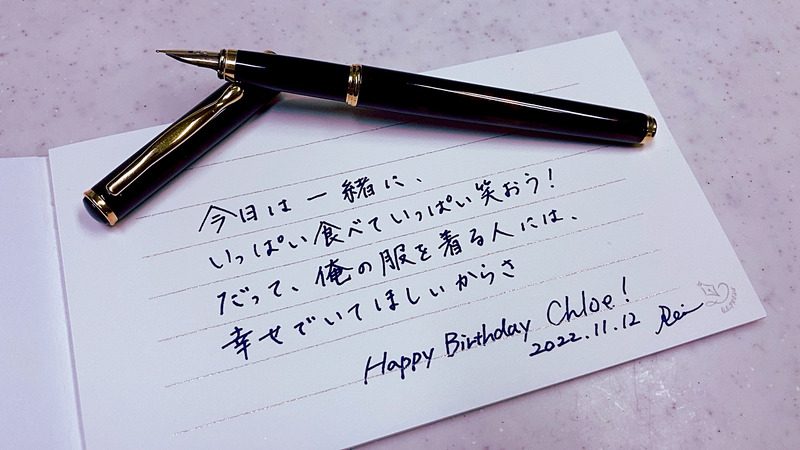 今日は一緒に、
いっぱい食べていっぱい笑おう!
だって、俺の服を着る人には、
幸せでいてほしいからさ
Happy Birthday Chloe!
2022.11.12 Rei